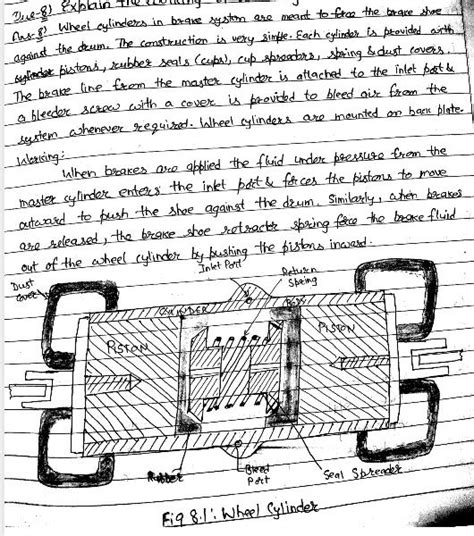 Que-8) Explain the
Ans:8) Wheel cylinders in brake system are meant to force the brake shoe
against the drum. The construction is very simple. Each cylinder is provided with
pistons, rubber seals (cups), cup spreaders, spring & dust covers.
The brake line from the master cylinder is attached to the inlet port &
a bleeder screw with a cover is provided to bleed air from the
system whenever required. Wheel cylinders are mounted on back plate.
Working:
When brakes are applied the fluid under pressure from the
master cylinder enters the inlet port & forces the pistons to move
outward to push the shoe against the drum. Similarly, when brakes
are released, the brake shoe retractor spring force the brake fluid
out of the wheel cylinder by pushing the pistons inward.
Dust cover
Inlet Port
Return Spring
CYLINDER
BODY
PISTON
PISTON
Rubber
Bleed Port
Seal Spreader
Fig 8.1: Wheel Cylinder